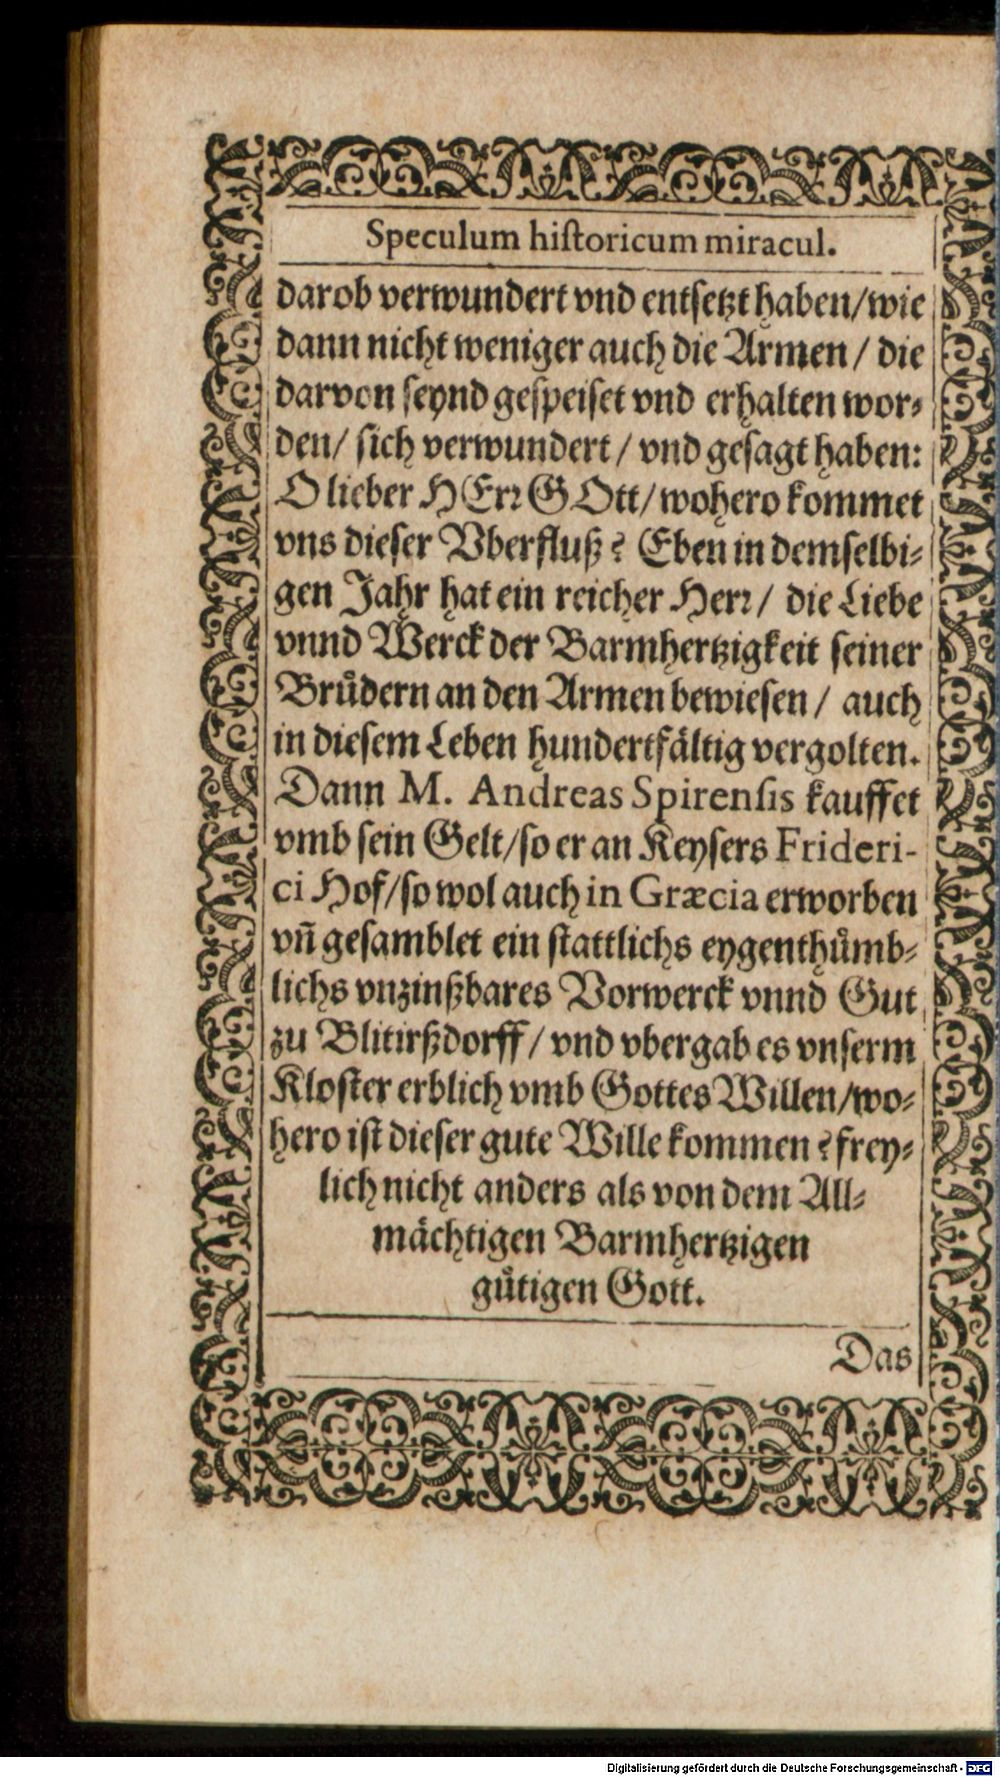 Speculum historicum miracul.
darob verwundert vnd entsetzt haben/wie
dann nicht weniger auch die Armen / die
darvon seynd gespeiset vnd erhalten wor⸗
den/ sich verwundert / vnd gesagt haben:
O lieber HErꝛ GOtt/ wohero kommet
vns dieser Vberfluß? Eben in demselbi⸗
gen Jahr hat ein reicher Herꝛ / die Liebe
vnnd Werck der Barmhertzigkeit seiner
Bruͤdern an den Armen bewiesen / auch
in diesem Leben hundertfaͤltig vergolten.
Dann M. Andreas Spirensis kauffet
vmb sein Gelt/so er an Keysers Frideri-
ci Hof/so wol auch in Græcia erworben
vñ gesamblet ein stattlichs eygenthuͤmb⸗
lichs vnzinßbares Vorwerck vnnd Gut
zu Blitirßdorff / vnd vbergab es vnserm
Kloster erblich vmb Gottes Willen/wo⸗
hero ist dieser gute Wille kommen? frey⸗
lich nicht anders als von dem All⸗
maͤchtigen Barmhertzigen
guͤtigen Gott.
Das
Digitalisierung gefördert durch die Deutsche Forschungsgemeinschaft - DFG